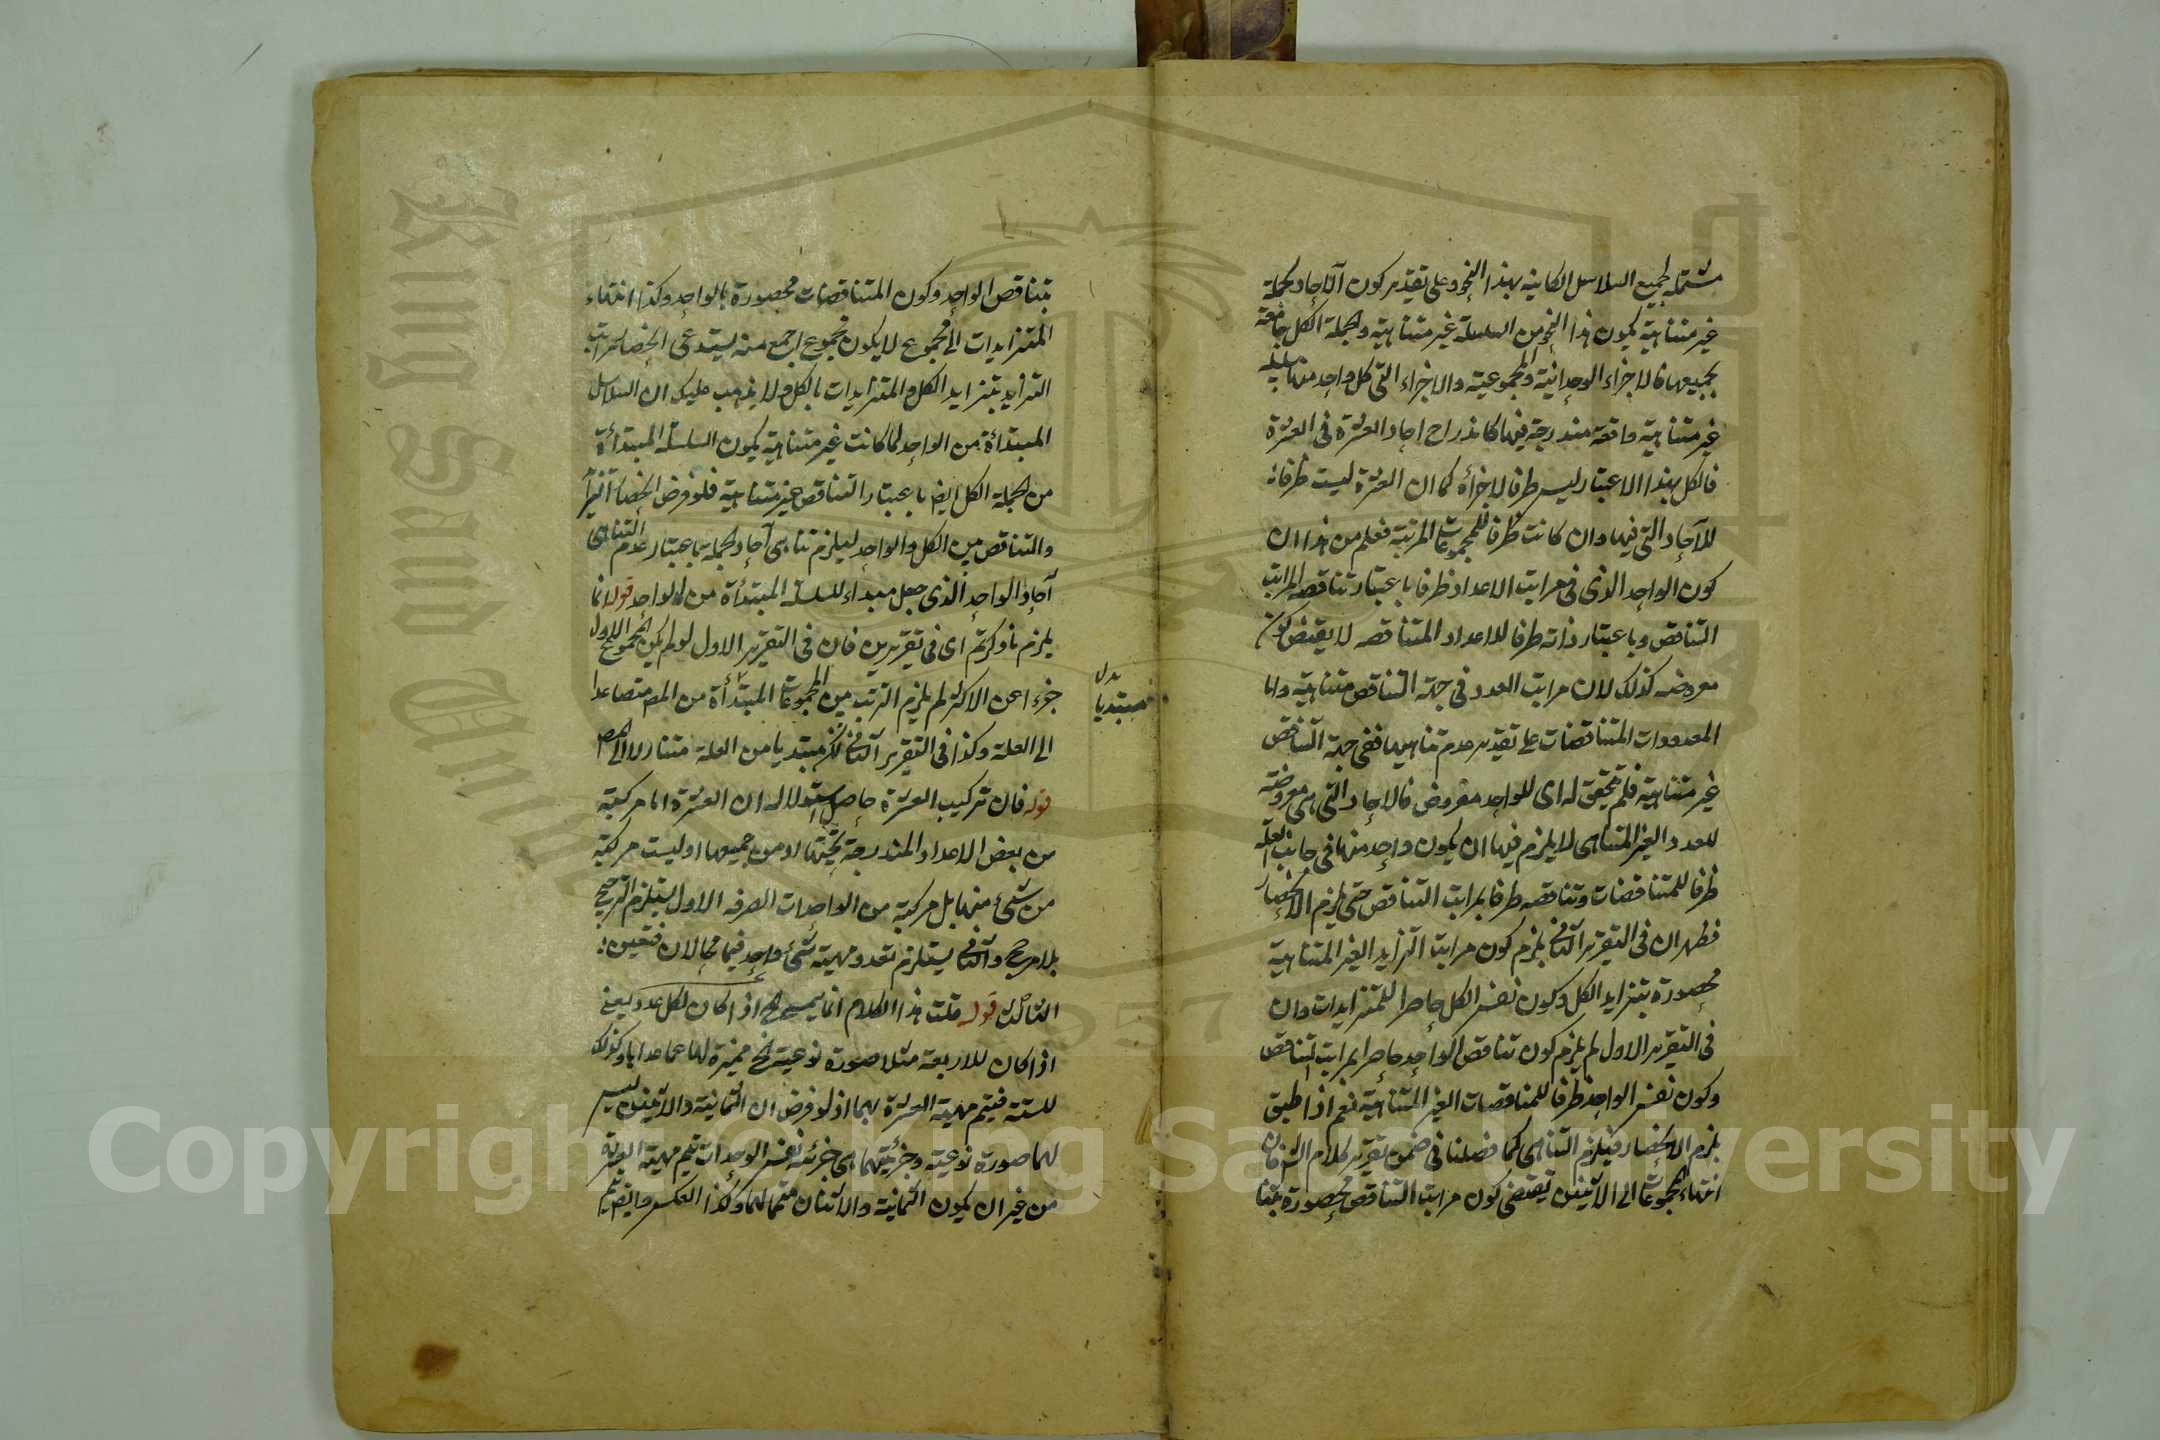 مشتملة لجميع السلاسل الكائنة بهذا النحو وعلى تقدير كون الآحاد كجملة
غير متناهية يكون هذا النحو من السلسلة غير متناهية والجملة الكل جامعة
بجميعها فالاجزاء الوحدانية والمجموعية والاجزاء التى كل واحد منها سلسلة
غير متناهية واقعة مندرجة فيها كاندراج احاد العشرة فى العشرة
فالكل بهذا الاعتبار ليس طرفا لاجزائه كما ان العشرة ليست طرفا
للآحاد التى فيها وان كانت طرفا للمجموعات المرتبة فعلم من هذا ان
كون الواحد الذى فى مراتب الاعداد طرفا باعتبار تناقصه لمراتب
التناقص وباعتبار ذاته طرفا للاعداد المتناقصة لا يقتضى كون
معروضه كذلك لان مراتب العدد فى جهة التناقص متناهية واما
المعدودات المتناقصات على تقدير عدم تناهيها ففى جهة التناقص
غير متناهية فلم يتحقق له اى للواحد معروض فالاحاد التى هى معروضة
للعدد الغير المتناهى لا يلزم فيها ان يكون واحد منها فى جانب العلة
طرفا للمتناقصات وتناقصه طرفا لمراتب التناقص حتى يلزم الانحصار
فظهر ان فى التقرير الثانى يلزم كون مراتب التزايد الغير المتناهية
محصورة بتزايد الكل وكون نفس الكل حاصرا للمتزايدات وان
فى التقرير الاول لم يلزم كون تناقص الواحد حاصرا لمراتب التناقص
وكون نفس الواحد طرفا للمتناقصات الغير المتناهية نعم اذا طبق
يلزم الانحصار فيلزم التناهى كما فصلنا فى ضمن تقرير كلام الش فان
انتهاء المجموعات الى الاثنين يقتضى كون مراتب التناقص محصورة بتنا
بتناقص الواحد وكون المتناقصات محصورة بالواحد وكذا انتهاء
المتزايدات الى مجموع لا يكون مجموع اجمع منه يستدعى انحصار مراتب
التزايد بتزايد الكل والمتزايدات بالكل ولا يذهب عليك ان السلاسل
المبتدأة من الواحد لما كانت غير متناهية يكون السلسلة المبتدأة
من الجملة الكل ايضا باعتبار التناقص غير متناهية فلو فرض انحصار التزايد
والتناقص بين الكل والواحد ليلزم تناهى آحاد الجملة باعتبار عدم التناهى
آحاد الواحد الذى جعل مبداء للسلسلة المبتدأة من الواحد قوله انما
يلزم ما ذكرتم اى فى تقريرين فان فى التقرير الاول لو لم يكن المجموع الاول
جزءا عن الاكثر لم يلزم الترتب بين المجموعات المبتدأة من المص متصاعدا
الى العلة وكذا فى التقرير الثانى لكن مبتديا من العلة متنازلا الى المص
بدل
مبتديا
قوله فان تركيب العشرة حاصل استدلاله ان العشرة اما مركبة
من بعض الاعداد المندرجة تحتها او من جميعها او ليست مركبة
من شئ منها بل مركبة من الواحدات الصرفه الاول يستلزم الترجيح
بلا مرجح والثانى يستلزم تعدد مهية شئ واحد فهما محالان فتعين
الثالث قوله قلت هذا الكلام انما يصح اذا كان لكل عدد يعنى
اذا كان للاربعة مثلا صورة نوعية مميزة لها عما عداها وكذلك
للستة فيتم مهية العشرة بهما اذ لو فرض ان الثمانية والاثنين ليس
لهما صورة نوعية وجزئيتهما هى جزئية نفس الوحدات يتم مهية العشرة
من غير ان يكون الثمانية والاثنان متمما لهما وكذا العكس وايضا